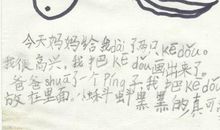 今天妈妈给我dài了两只kēdǒu。
我很高兴，我把kēdǒu画出来了。
爸爸shuā了个píng子，我把kēdǒu
放在里面。小蝌斗黑黑的真可